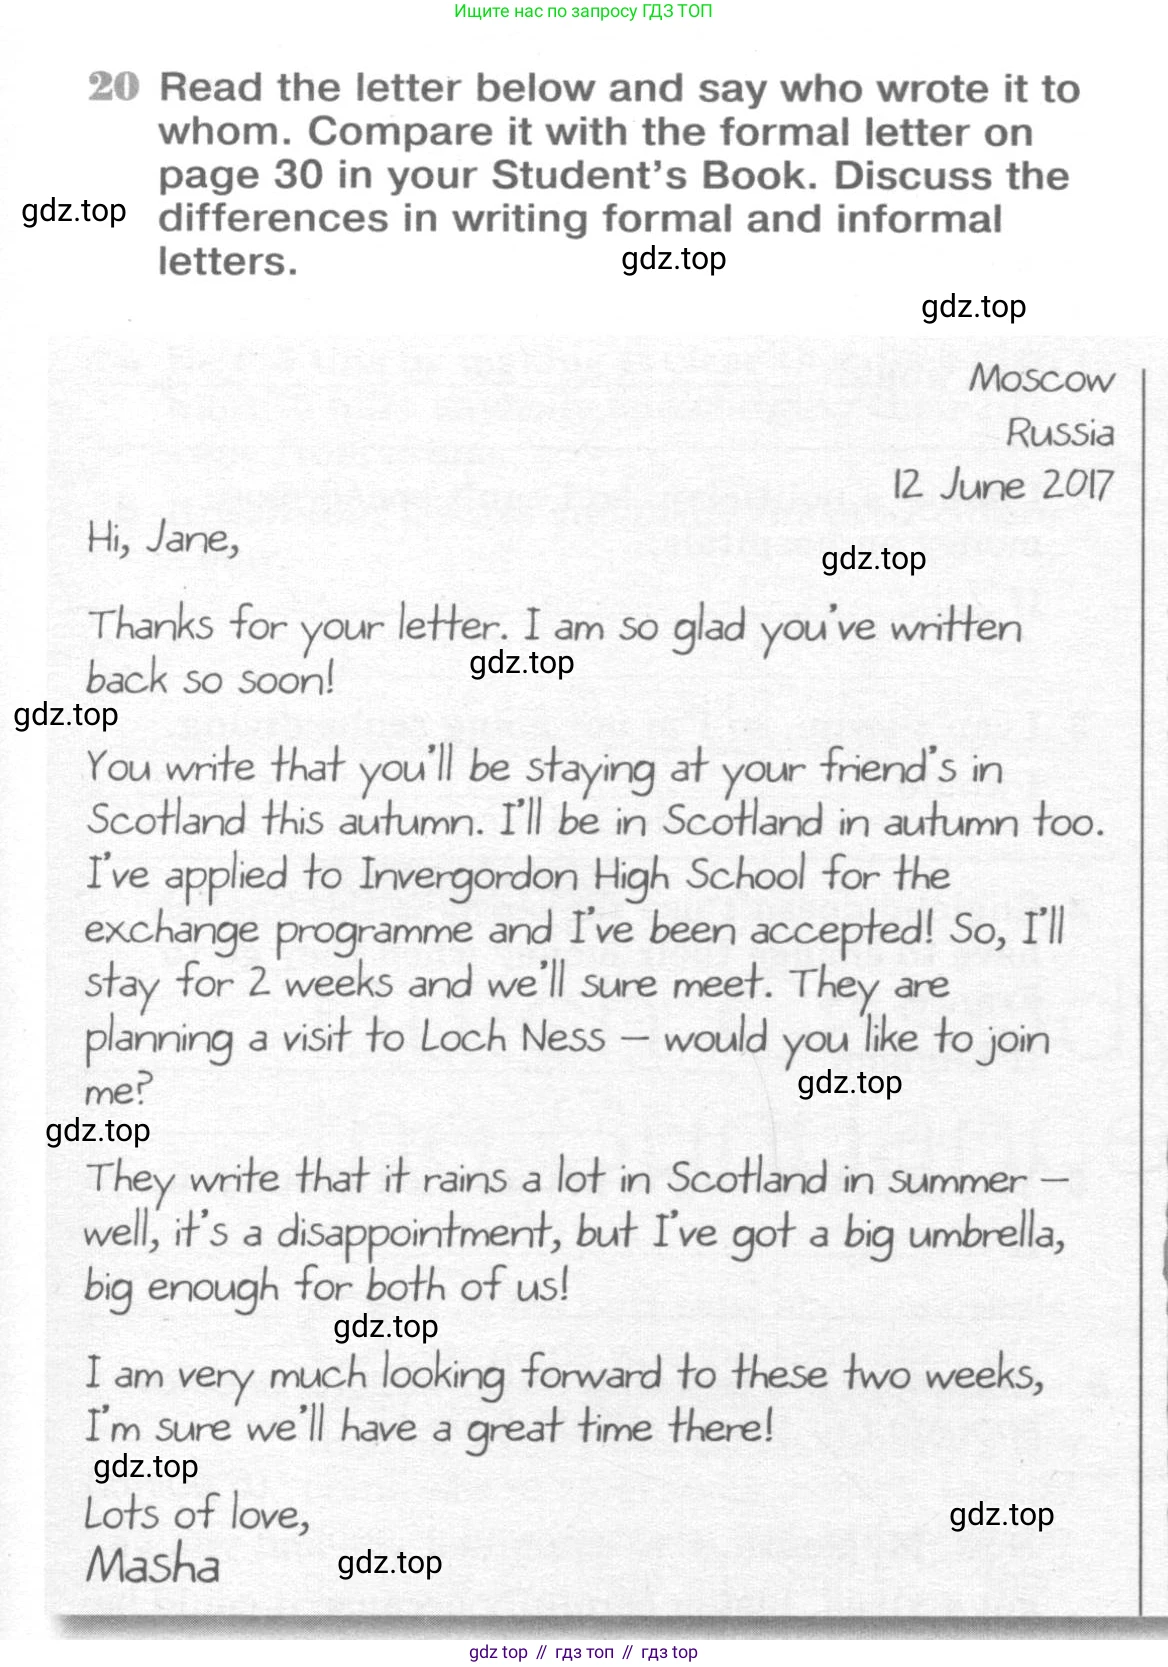 Ищите нас по запросу ГДЗ ТОП
20 Read the letter below and say who wrote it to
whom. Compare it with the formal letter on
page 30 in your Student's Book. Discuss the
gdz.top
differences in writing formal and informal
letters.
gdz.top
gdz.top
Moscow
Russia
12 June 2017
Hi, Jane,
gdz.top
Thanks for your letter. I am so glad you've written
back so soon!
gdz.top
gdz.top
You write that you'll be staying at your friend's in
Scotland this autumn. I'll be in Scotland in autumn too.
I've applied to Invergordon High School for the
exchange programme and I've been accepted! So, I'll
stay for 2 weeks and we'll sure meet. They are
planning a visit to Loch Ness – would you like to join
me?
gdz.top
gdz.top
They write that it rains a lot in Scotland in summer –
well, it's a disappointment, but I've got a big umbrella,
big enough for both of us!
gdz.top
I am very much looking forward to these two weeks,
I'm sure we'll have a great time there!
gdz.top
Lots of love,
gdz.top
Masha
gdz.top
gdz top // гдз топ // гдз top